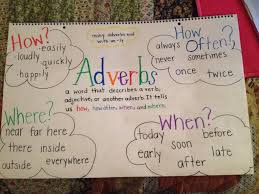 How?
-easily
-loudly
quickly
-happily
many adverbs end
with -ly
How
Often?
always
never sometimes
once twice
Adverbs
a word that describes a verb,
adjective, or another adverb. It tells
us how, how often, when, and where.
Where?
near far here
there inside
outside everywhere
When?
today before
early soon later
after